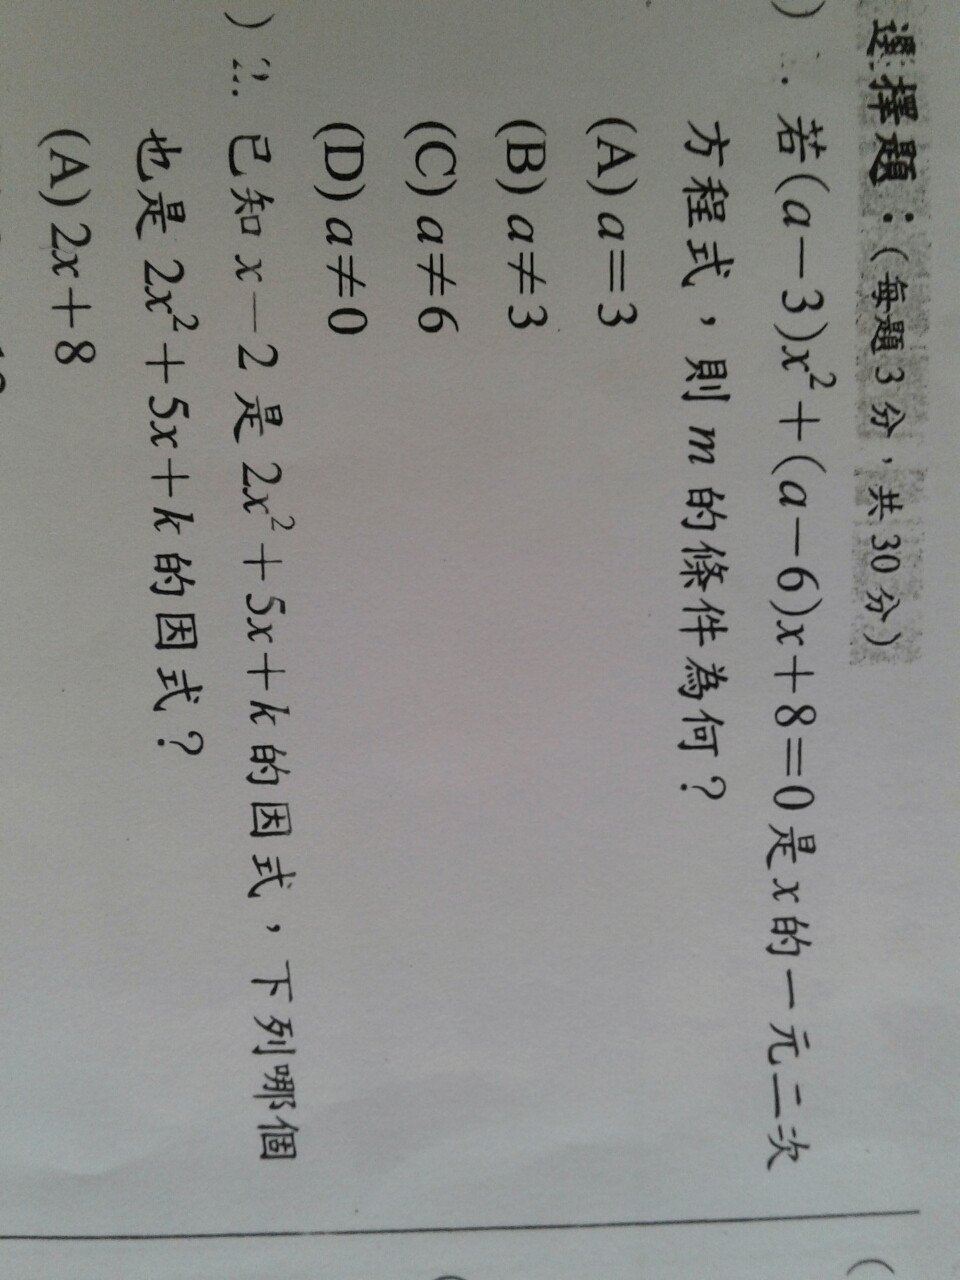 選擇題：(每題3分，共30分)
) 若(a－3)x²＋(a－6)x＋8＝0是x的一元二次
方程式，則m的條件為何？
(A) a＝3
(B) a≠3
(C) a≠6
(D) a≠0
) 2. 已知x－2是2x²＋5x＋k的因式，下列哪個
也是2x²＋5x＋k的因式？
(A) 2x＋8